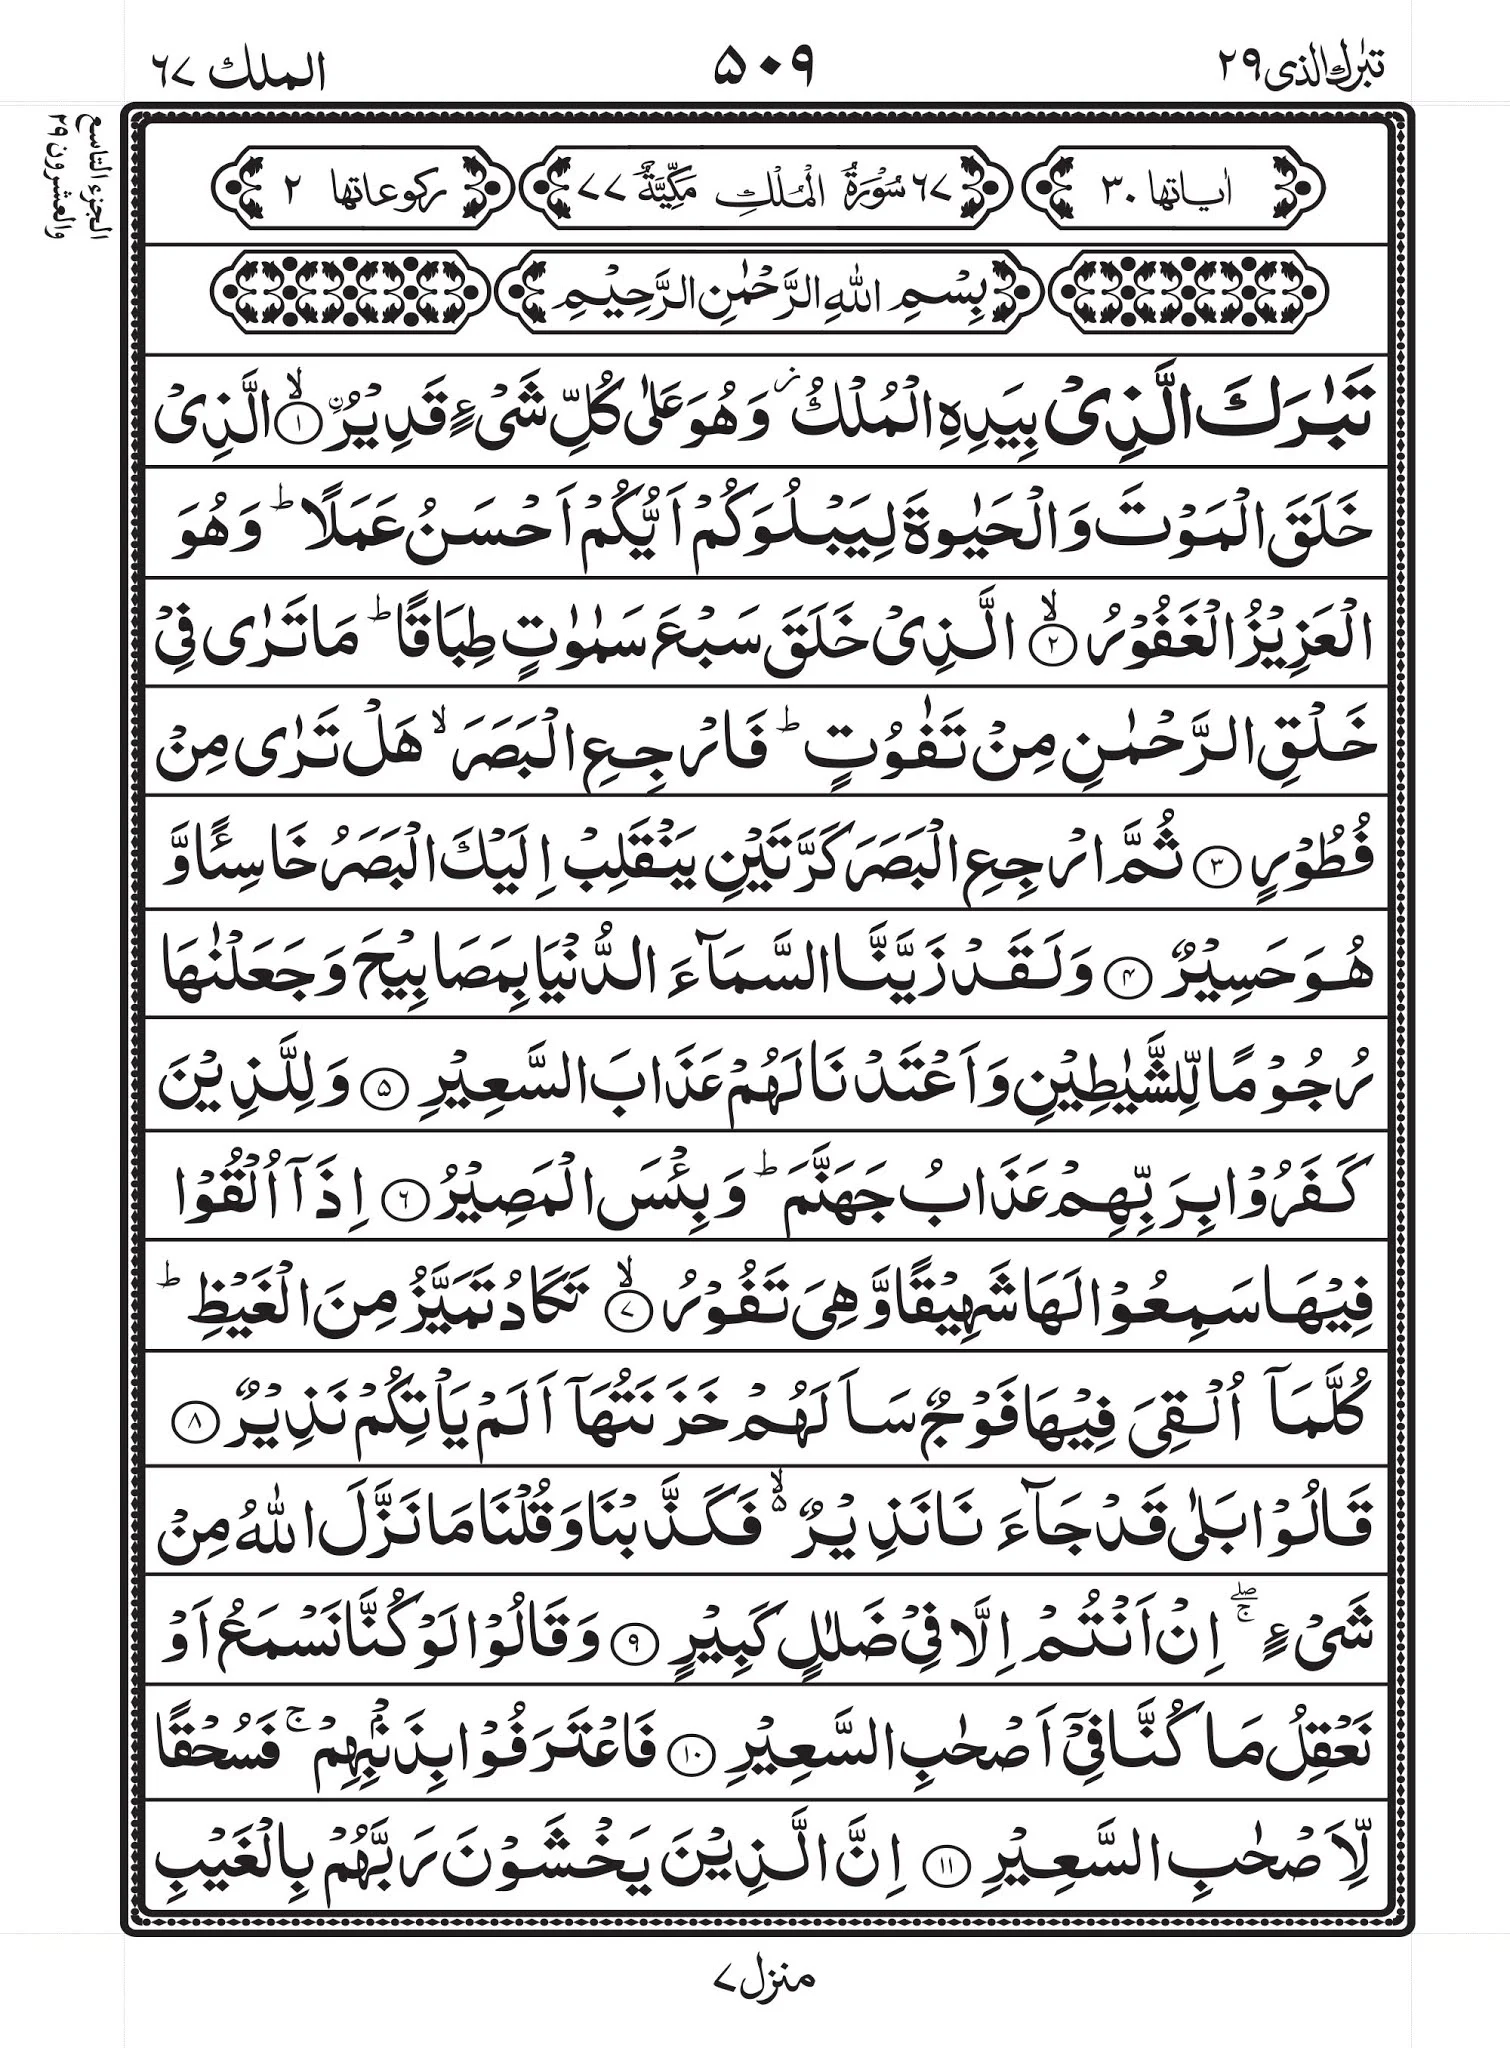 تبٰرك الذی ٢٩
۵۰۹
الملك ٦٧
الجزء التاسع
والعشرون ٢٩
اٰیاتها ٣٠
٦٧ سُوْرَةُ الْمُلْكِ مَكِّيَّةٌ ٧٧
ركوعاتها ٢
بِسْمِ اللهِ الرَّحْمٰنِ الرَّحِيْمِ
تَبٰرَكَ الَّذِىْ بِيَدِهِ الْمُلْكُ ز وَهُوَ عَلٰى كُلِّ شَىْءٍ قَدِيْرُ ۨ ۙ‏﴿۱﴾ الَّذِىْ
خَلَقَ الْمَوْتَ وَالْحَيٰوةَ لِيَبْلُوَكُمْ اَيُّكُمْ اَحْسَنُ عَمَلًا ؕ وَهُوَ
الْعَزِيْزُ الْغَفُوْرُ ۙ‏﴿۲﴾ الَّذِىْ خَلَقَ سَبْعَ سَمٰوٰتٍ طِبَاقًا ؕ مَا تَرٰى فِىْ
خَلْقِ الرَّحْمٰنِ مِنْ تَفٰوُتٍ ؕ فَارْجِعِ الْبَصَرَ ۙ هَلْ تَرٰى مِنْ
فُطُوْرٍ ﴿۳﴾ ثُمَّ ارْجِعِ الْبَصَرَ كَرَّتَيْنِ يَنْقَلِبْ اِلَيْكَ الْبَصَرُ خَاسِئًا وَّ
هُوَ حَسِيْرٌ ﴿۴﴾ وَلَقَدْ زَيَّنَّا السَّمَآءَ الدُّنْيَا بِمَصَابِيْحَ وَجَعَلْنٰهَا
رُجُوْمًا لِّلشَّيٰطِيْنِ وَاَعْتَدْنَا لَهُمْ عَذَابَ السَّعِيْرِ ﴿۵﴾ وَلِلَّذِيْنَ
كَفَرُوْا بِرَبِّهِمْ عَذَابُ جَهَنَّمَ ؕ وَبِئْسَ الْمَصِيْرُ ﴿۶﴾ اِذَاۤ اُلْقُوْا
فِيْهَا سَمِعُوْا لَهَا شَهِيْقًا وَّهِىَ تَفُوْرُ ۙ‏﴿۷﴾ تَكَادُ تَمَيَّزُ مِنَ الْغَيْظِ ؕ
كُلَّمَاۤ اُلْقِىَ فِيْهَا فَوْجٌ سَاَلَهُمْ خَزَنَتُهَاۤ اَلَمْ يَاْتِكُمْ نَذِيْرٌ ﴿۸﴾
قَالُوْا بَلٰى قَدْ جَآءَنَا نَذِيْرٌ ۙ۬ فَكَذَّبْنَا وَقُلْنَا مَا نَزَّلَ اللهُ مِنْ
شَىْءٍ ۖۚ اِنْ اَنْتُمْ اِلَّا فِىْ ضَلٰلٍ كَبِيْرٍ ﴿۹﴾ وَقَالُوْا لَوْ كُنَّا نَسْمَعُ اَوْ
نَعْقِلُ مَا كُنَّا فِىْۤ اَصْحٰبِ السَّعِيْرِ ﴿۱۰﴾ فَاعْتَرَفُوْا بِذَنْۢبِهِمْ ۚ فَسُحْقًا
لِّاَصْحٰبِ السَّعِيْرِ ﴿۱۱﴾ اِنَّ الَّذِيْنَ يَخْشَوْنَ رَبَّهُمْ بِالْغَيْبِ
منزل ٧